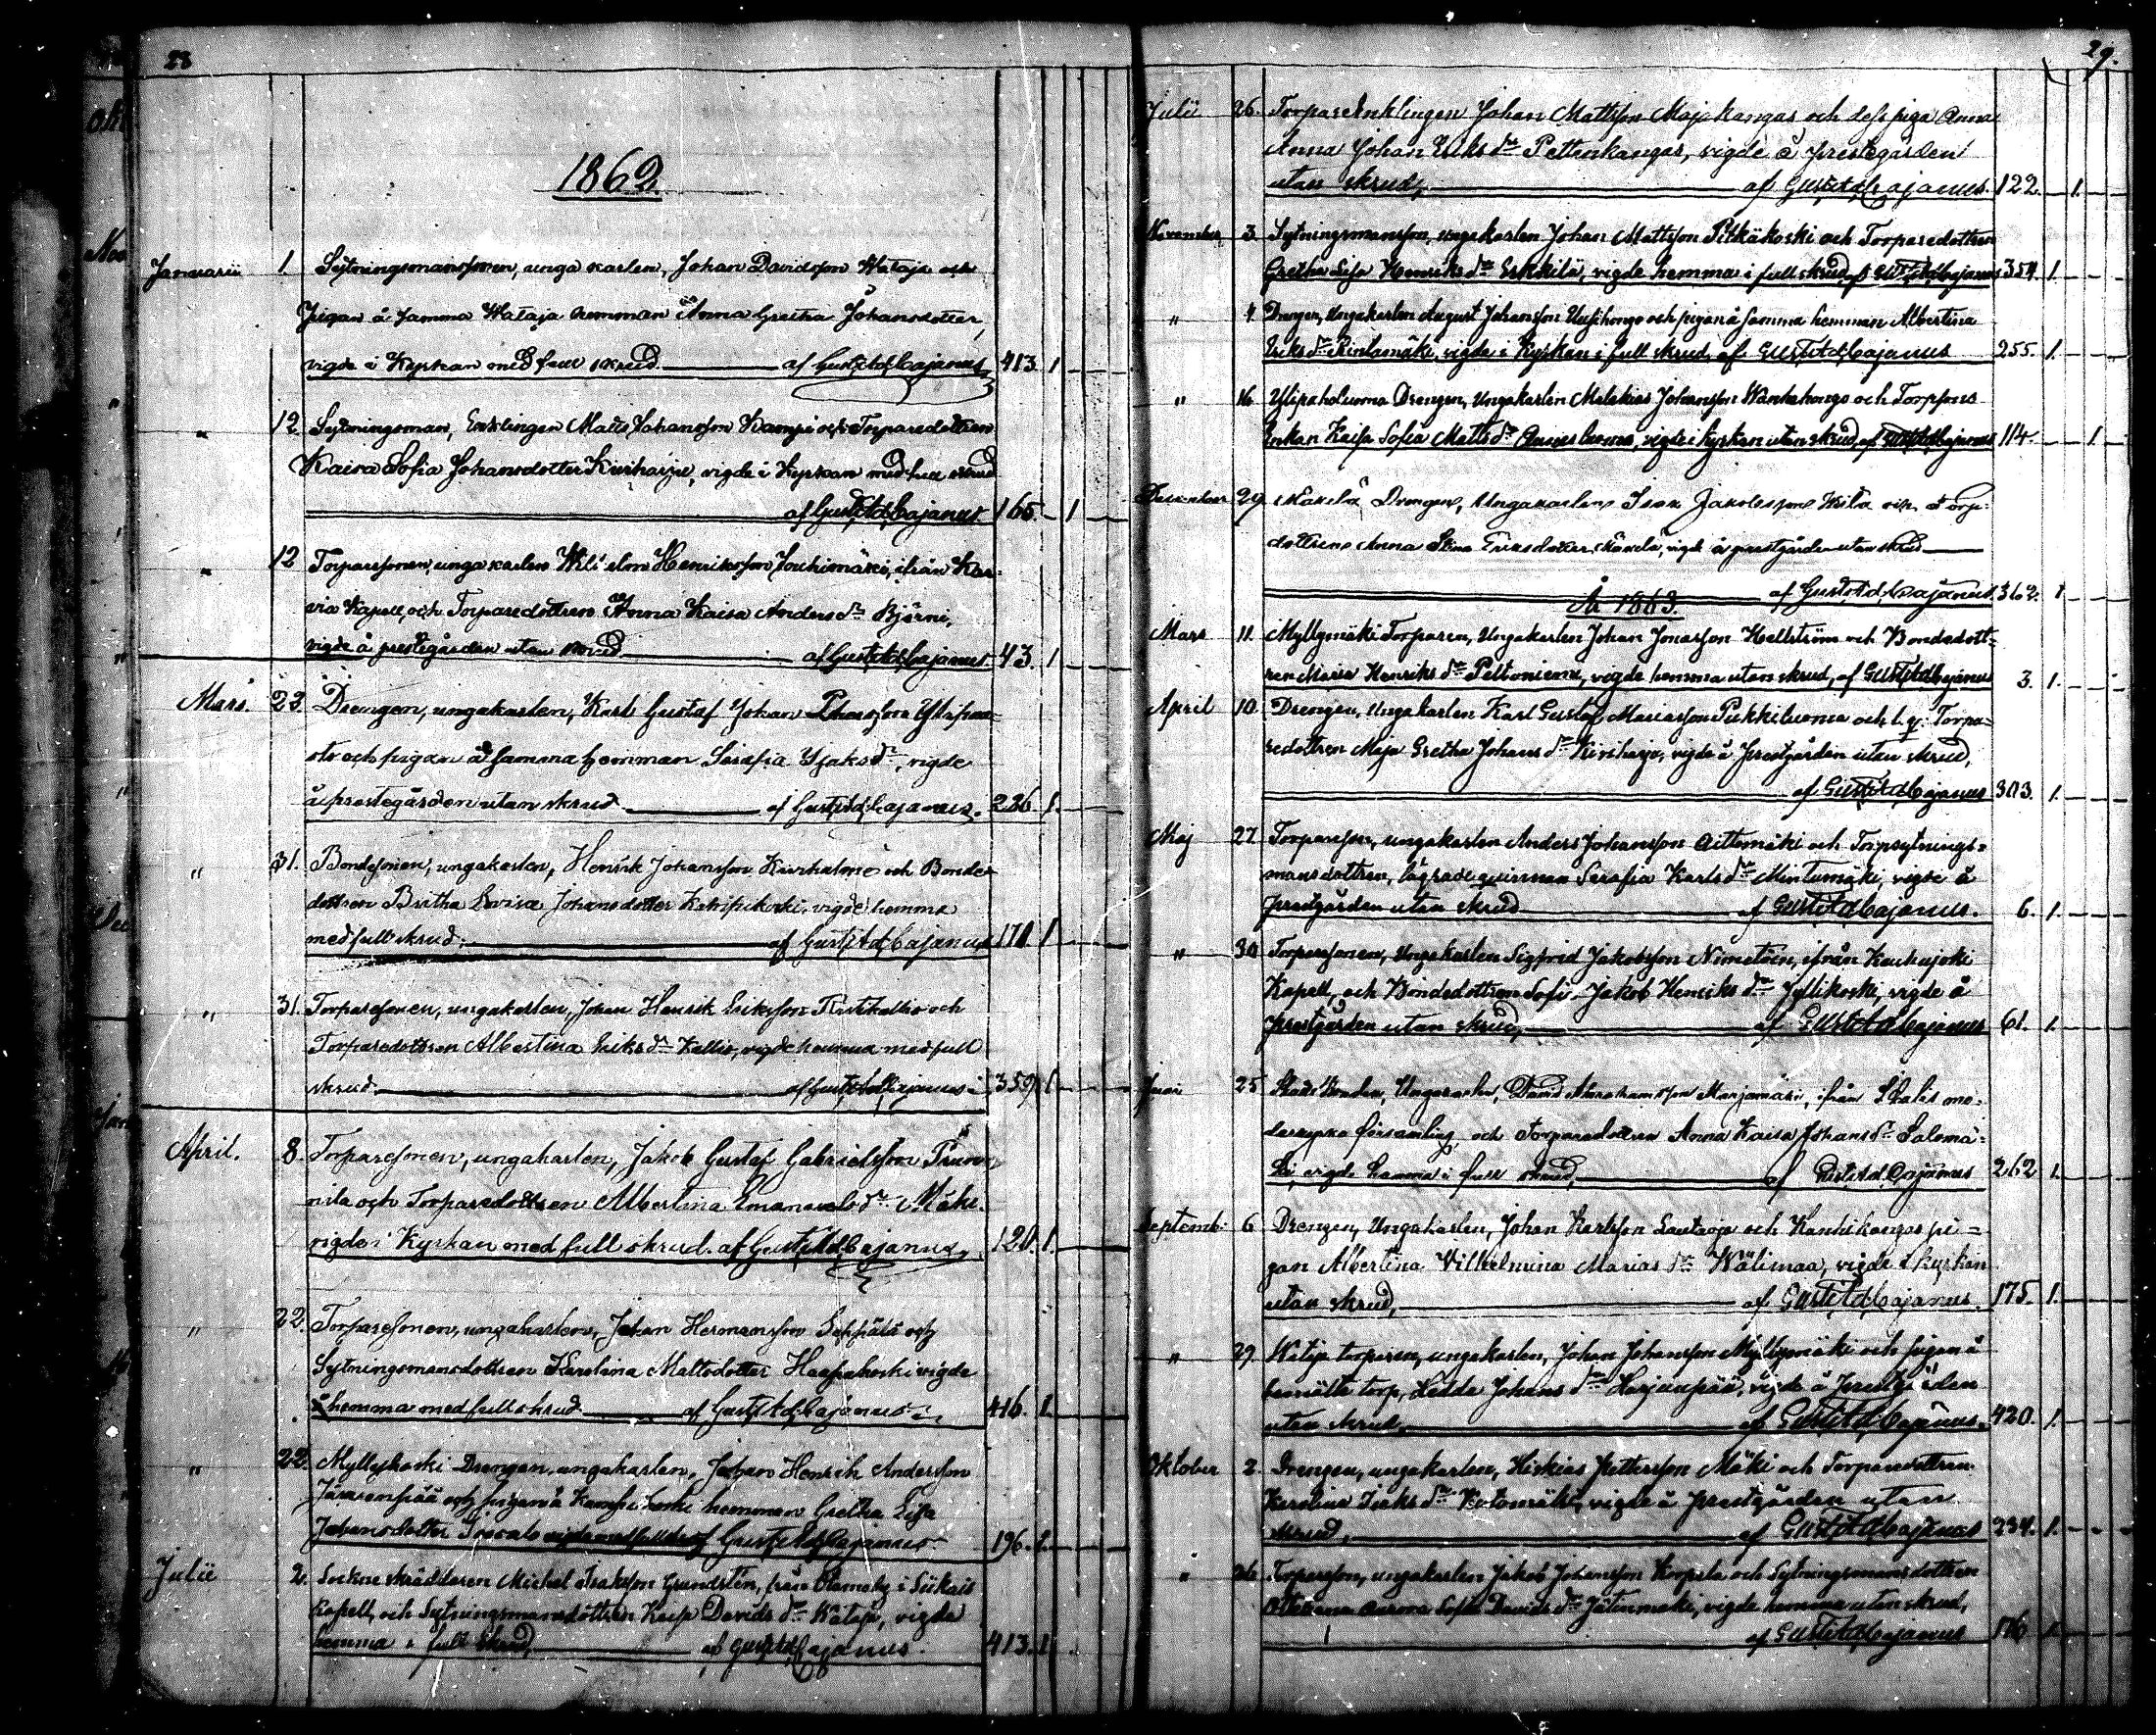 28
1862
Januarii 1 Sytningsmanssonen, unga karlen, Johan Davidsson Wataja och
Pigan å samma Wataja hemman Anna Gretha Johansdotter,
vigde i Kyrkan med full skrud af Gust. Ad. Cajanus 413. 1
" 12. Sytningsman, Enklingen Matts Johansson Kampi och Torparedottren
Kaisa Sofia Johansdotter Kiviharju, vigde i Kyrkan med full skrud
af Gust. Ad. Cajanus 165. 1
" 12 Torparesonen, unga karlen Wilhelm Henriksson Jouhimäki, ifrån Kar-
via Kapell, och Torparedottren Anna Kaisa Anders dr Björni,
vigde å prestegården utan skrud af Gust. Ad. Cajanus 43. 1
Mars. 23. Drengen, ungakarlen, Karl Gustaf Johan
och pigan å samma hemman Serafia Isaks dr, vigde
å prestegården utan skrud af Gust. Ad. Cajanus. 226. 1.
" 31. Bondesonen, ungakarlen, Henrik Johansson och Bonde
dottren Britha Lovisa Johansdotter vigde hemma
med full skrud. af Gust. Ad. Cajanus 171. 1
" 31. Torparesonen, ungakarlen, Johan Henrik Eriksson och
Torparedottren Albertina Eriks dr Kallio, vigde hemma med full
skrud. af Gust. Ad. Cajanus 359. 1
April. 8. Torparesonen, ungakarlen, Jakob Gustaf Gabrielsson Prun-
nila och Torparedottren Albertina Emanuels dr Mäki.
vigde i Kyrkan med full skrud. af Gust. Ad. Cajanus, 120. 1.
" 22. Torparesonen, ungakarlen, Johan Hermansson Seppälä och
Sytningsmansdottren Karolina Mattsdotter Haapakoski vigde
hemma med full skrud af Gust. Ad. Cajanus 416. 1.
" 22. Myllykoski Drengen, ungakarlen, Johan Henrik Andersson
och pigan å hemman Gretha Lisa
Johansdotter vigde med full skrud af Gust. Ad. Cajanus 196. 1.
Julii 2. Sockne skräddaren Michel Isaksson Grundsten, från i Siikais
Kapell, och Sytningsmansdottren Kaisa Davids dr Wataja, vigde
hemma i full skrud, af Gust. Ad. Cajanus. 413. 1.
29.
Julii 26. Torpare Enklingen Johan Mattsson Majakangas och dess piga Anna
Anna Johan Eriks dr Pettenkangas, vigde å prestegården
utan skrud, af Gust. Ad. Cajanus. 122. 1.
November 3. Sytningsmansson, ungakarlen Johan Mattsson Pitkäkoski och Torparedottren
Gretha Lisa Henriks dr Eskkilä, vigde hemma i full skrud, af Gust. Ad. Cajanus 354. 1.
" 4. Drengen, Ungakarlen August Johansson Uusihongo och pigan å samma hemman Albertina
Eriks dr Rintamäki, vigde i Kyrkan i full skrud af Gust. Ad. Cajanus 255. 1.
" 16. Drengen, Ungakarlen Malakias Johansson Wanhahongo och Torpsons
Enkan Kaisa Sofia Matts dr vigde i kyrkan utan skrud, af Gust. Ad. Cajanus 114. 1.
December 29. Drengen, Ungakarlen Isak Jakobsson Kila och Torp-
dottren Anna Stina Eriksdotter vigde å prestgården utan skrud
af Gust. Ad. Cajanus. 362. 1
År 1863.
Mars 11. Myllymäki Torparen, Ungakarlen Johan Jonasson Hellström och Bondedott-
ren Maria Henriks dr Peltoniemi, vigde hemma utan skrud, af Gust. Ad. Cajanus 3. 1.
April 10. Drengen, Ungakarlen Karl Gustaf Mariasson Pukkiluoma och l. q. Torpa-
redottren Maja Gretha Johans dr Kiviharju, vigde å Prestgården utan skrud,
af Gust. Ad. Cajanus 303. 1.
Maj 27. Torparesson, ungakarlen Anders Johansson Aittomäki och Torpsytnings-
mansdottren, lägrade quinnan Serafia Karls dr Mintumäki, vigde å
Prestgården utan skrud af Gust. Ad. Cajanus. 6. 1.
" 30 Torparesonen, Ungakarlen Sigfrid Jakobsson Nimetöin, ifrån Kauhajoki
Kapell, och Bondedottren Sofi Jakob Henriks dr Jyllikoski, vigde å
prestgården utan skrud, af Gust. Ad. Cajanus 61. 1.
Juni 25. Ungakarlen, David Abrahamsson Marjamäki, ifrån Ikalis mo-
derkyrko församling och Torparedottren Anna Kaisa Johans dr Salomä-
ki, vigde hemma i full skrud, af Gust. Ad. Cajanus 262 1.
Septemb. 6. Drengen, Ungakarlen, Johan Karlsson Sautaoja och Kankikangas pi-
gan Albertina Vilhelmina Marias dr Wälimaa, vigde i kyrkan
utan skrud, af Gust. Ad. Cajanus. 175. 1.
" 29. Wataja torparen, ungakarlen, Johan Johansson Myllymäki och pigan å
bemälte torp, Hedda Johans dr Harjunpää, vigde å Prestgården
utan skrud, af Gust. Ad. Cajanus. 420. 1.
Oktober 2. Drengen, ungakarlen, Hiskias Pettersson Mäki och Torparedottren
Karolina Isaks dr Kotomäki, vigde å prestgården utan
skrud, af Gust. Ad. Cajanus 234. 1.
" 26. Torparesson, ungakarlen Jakob Johansson Korpela och Sytningsmansdottren
Aurora Sofia Davids dr Jätinmäki, vigde hemma utan skrud,
af Gust. Ad. Cajanus 176 1.